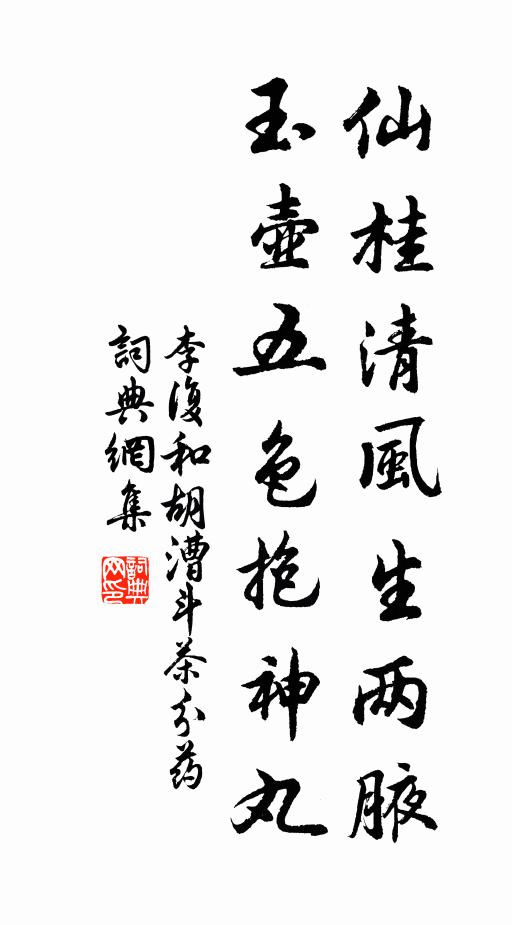 仙桂清風生两腋
玉壺五色抱神丸
李復和胡漕斗茶分药
詞典網集
詞典网印